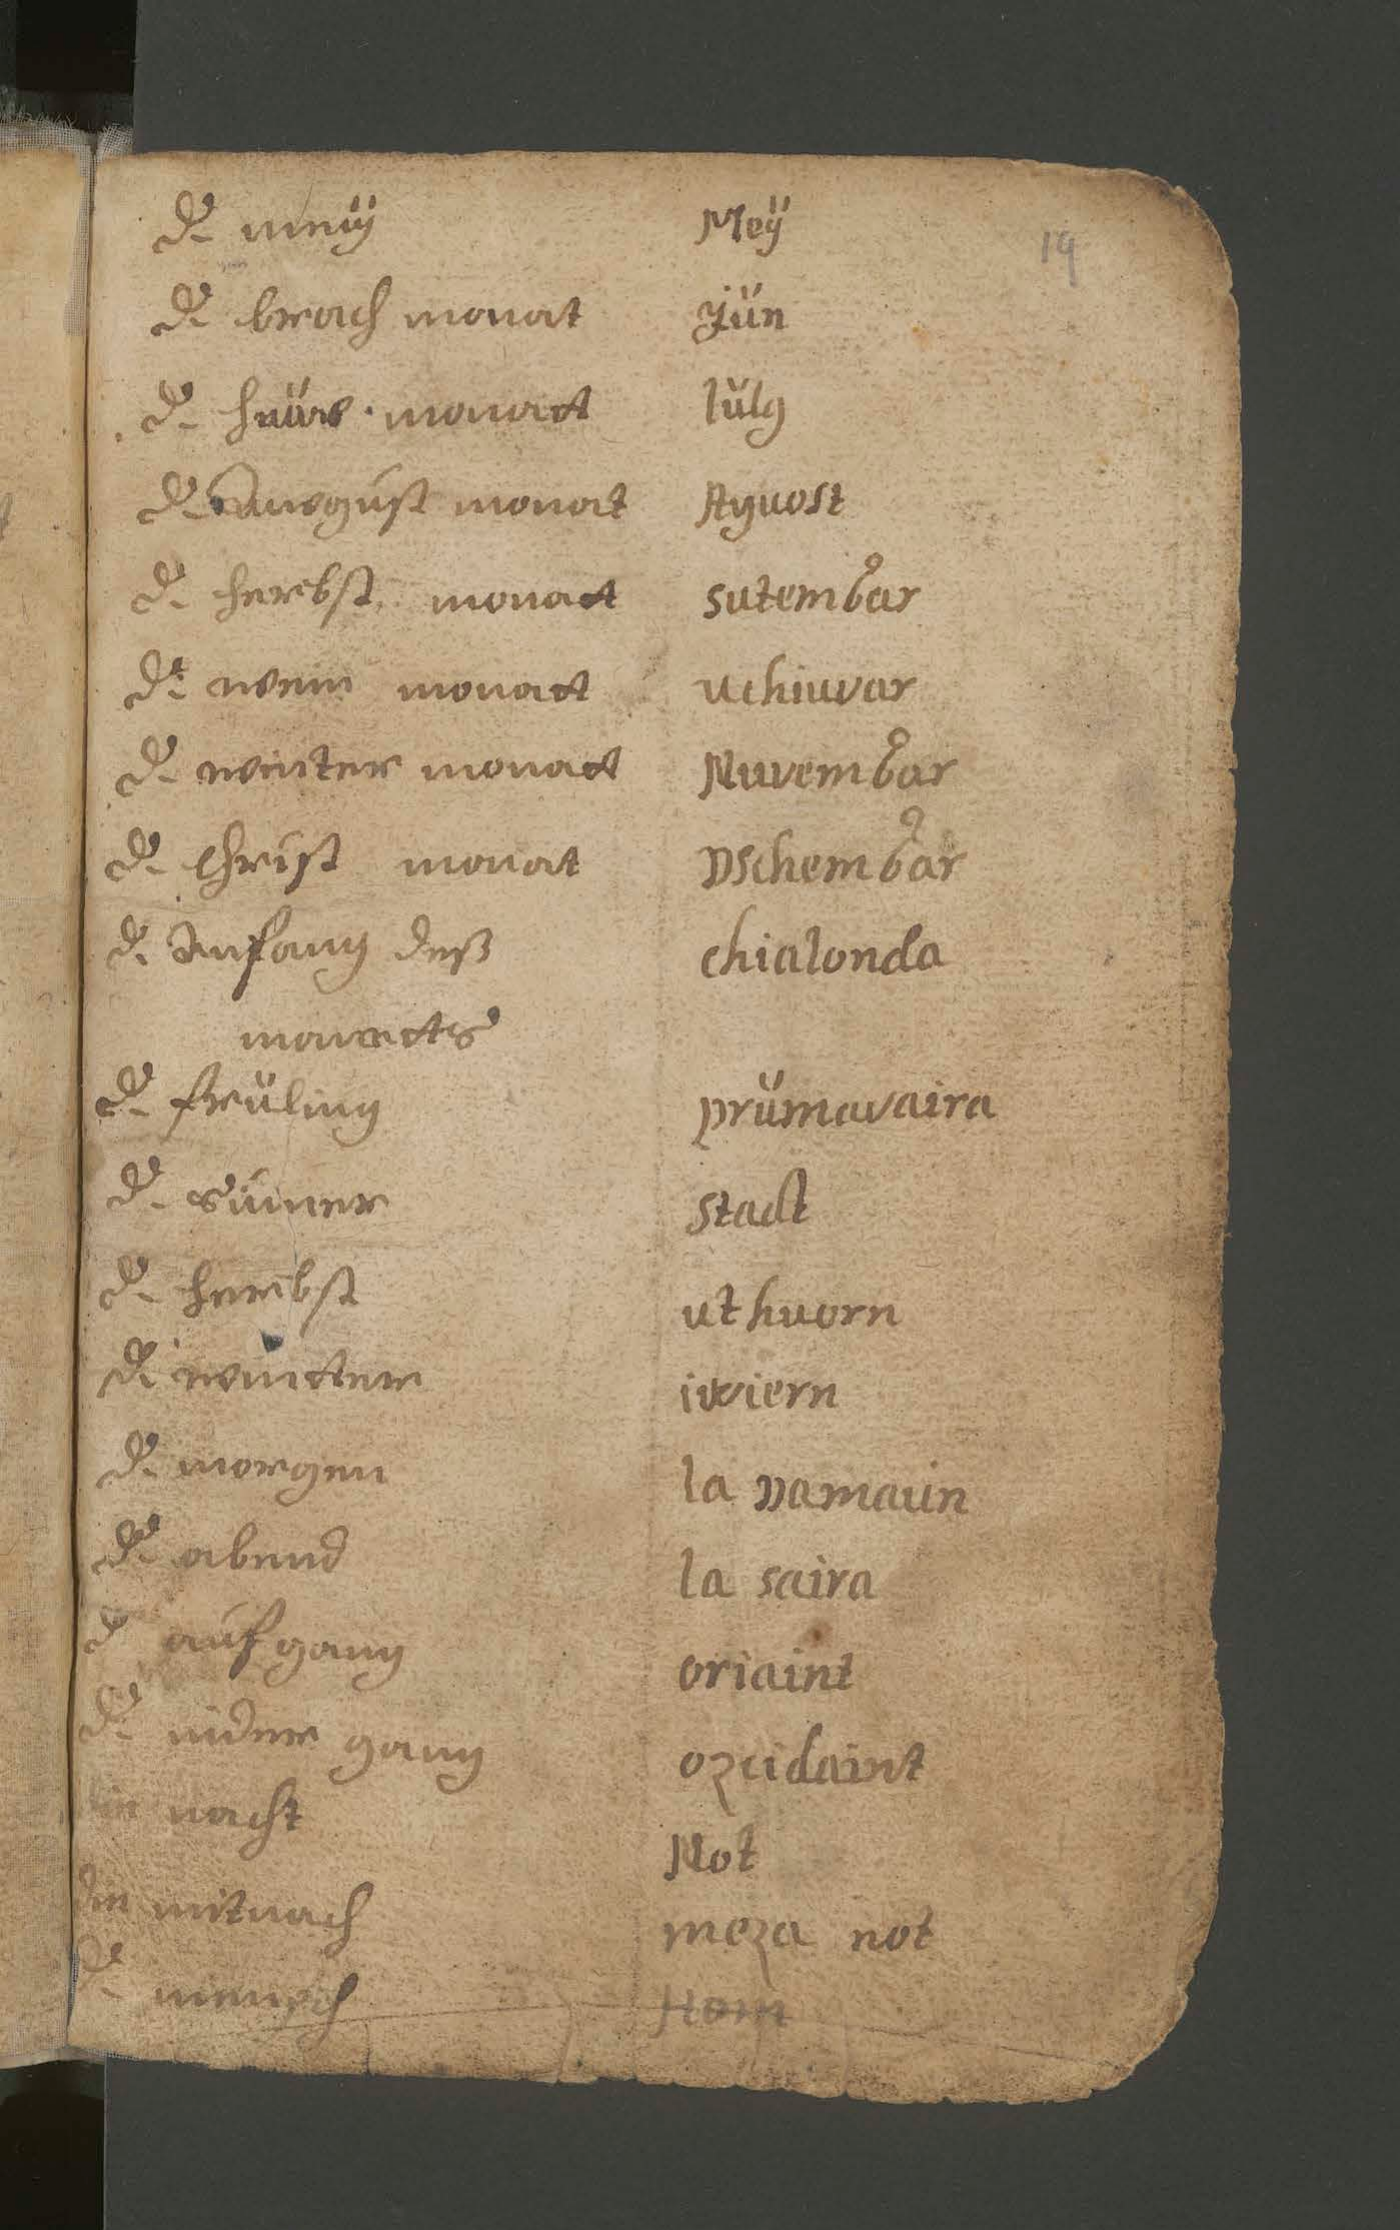 19
d. meÿ Meÿ
d. brach monat Jün
d. heüw monatt lülg
d. Auwgust monat Aguost
d. herbst monatt sutembar
d. wein monatt uchiuvar
d. winter monatt Nuvembar
d. Christ monat Dschembar
d. Anfang deß chialonda
monatts
d. früling prümavaira
d. sumer stadt
d. herbst uthuorn
d. wintter iwiern
d. morgen la Damaun
d. abend la saira
d. aufgang oriaint
d. nider gang ozcidaint
die nacht Not
die mitnach meza not
d. mensch Hom